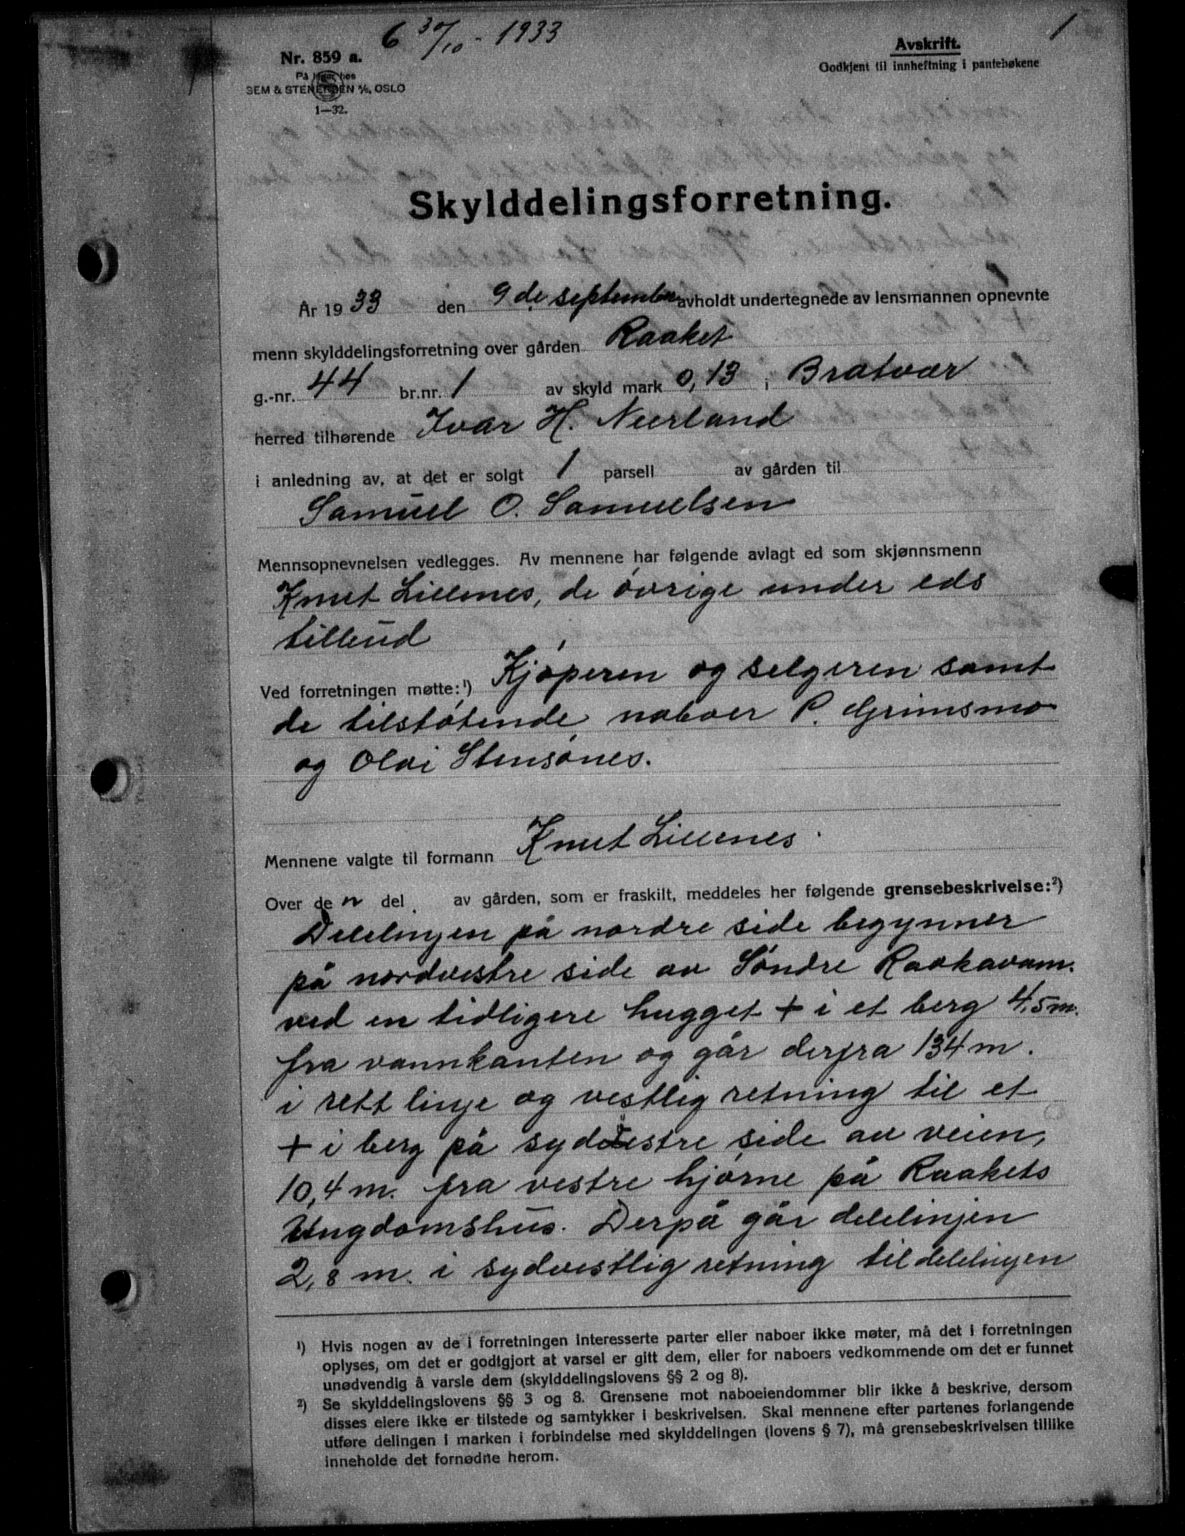 6 30/10 - 1933
1
Nr. 859 a.
På lager hos
SEM & STENERSEN A/S, OSLO
1—32.
Avskrift.
Godkjent til innheftning i pantebøkene
Skylddelingsforretning.
År 1933 den 9de september avholdt undertegnede av lensmannen opnevnte
menn skylddelingsforretning over gården Raaket
g.-nr. 44 br.nr. 1 av skyld mark 0,13 i Bratvær
herred tilhørende Ivar H. Neerland
i anledning av, at det er solgt 1 parsell av gården til
Samuel O. Samuelsen
Mennsopnevnelsen vedlegges. Av mennene har følgende avlagt ed som skjønnsmenn
Knut Lillenes, de øvrige under eds
tilbud
Ved forretningen møtte:¹) Kjøperen og selgeren samt
de tilstøtende naboer P. Grimsmo
og Olai Stensønes.
Mennene valgte til formann Knut Lillenes.
Over den del av gården, som er fraskilt, meddeles her følgende grensebeskrivelse:²)
Delelinjen på nordre side begynner
på nordvestre side av Søndre Raakavam.
ved en tidligere hugget + i et berg 4,5 m.
fra vannkanten og går derfra 134 m.
i rett linje og vestlig retning til et
+ i berg på sydvestre side av veien,
10,4 m. fra vestre hjørne på Raakets
Ungdomshus. Derpå går delelinjen
2,8 m. i sydvestlig retning til delelinjen
¹) Hvis nogen av de i forretningen interesserte parter eller naboer ikke møter, må det i forretningen
oplyses, om det er godtgjort at varsel er gitt dem, eller for naboers vedkommende om det er funnet
unødvendig å varsle dem (skylddelingslovens §§ 2 og 8).
²) Se skylddelingslovens §§ 3 og 8. Grensene mot naboeiendommer blir ikke å beskrive, dersom
disses eiere ikke er tilstede og samtykker i beskrivelsen. Skal mennene efter partenes forlangende
utføre delingen i marken i forbindelse med skylddelingen (lovens § 7), må grensebeskrivelsen tillike
inneholde det fornødne herom.